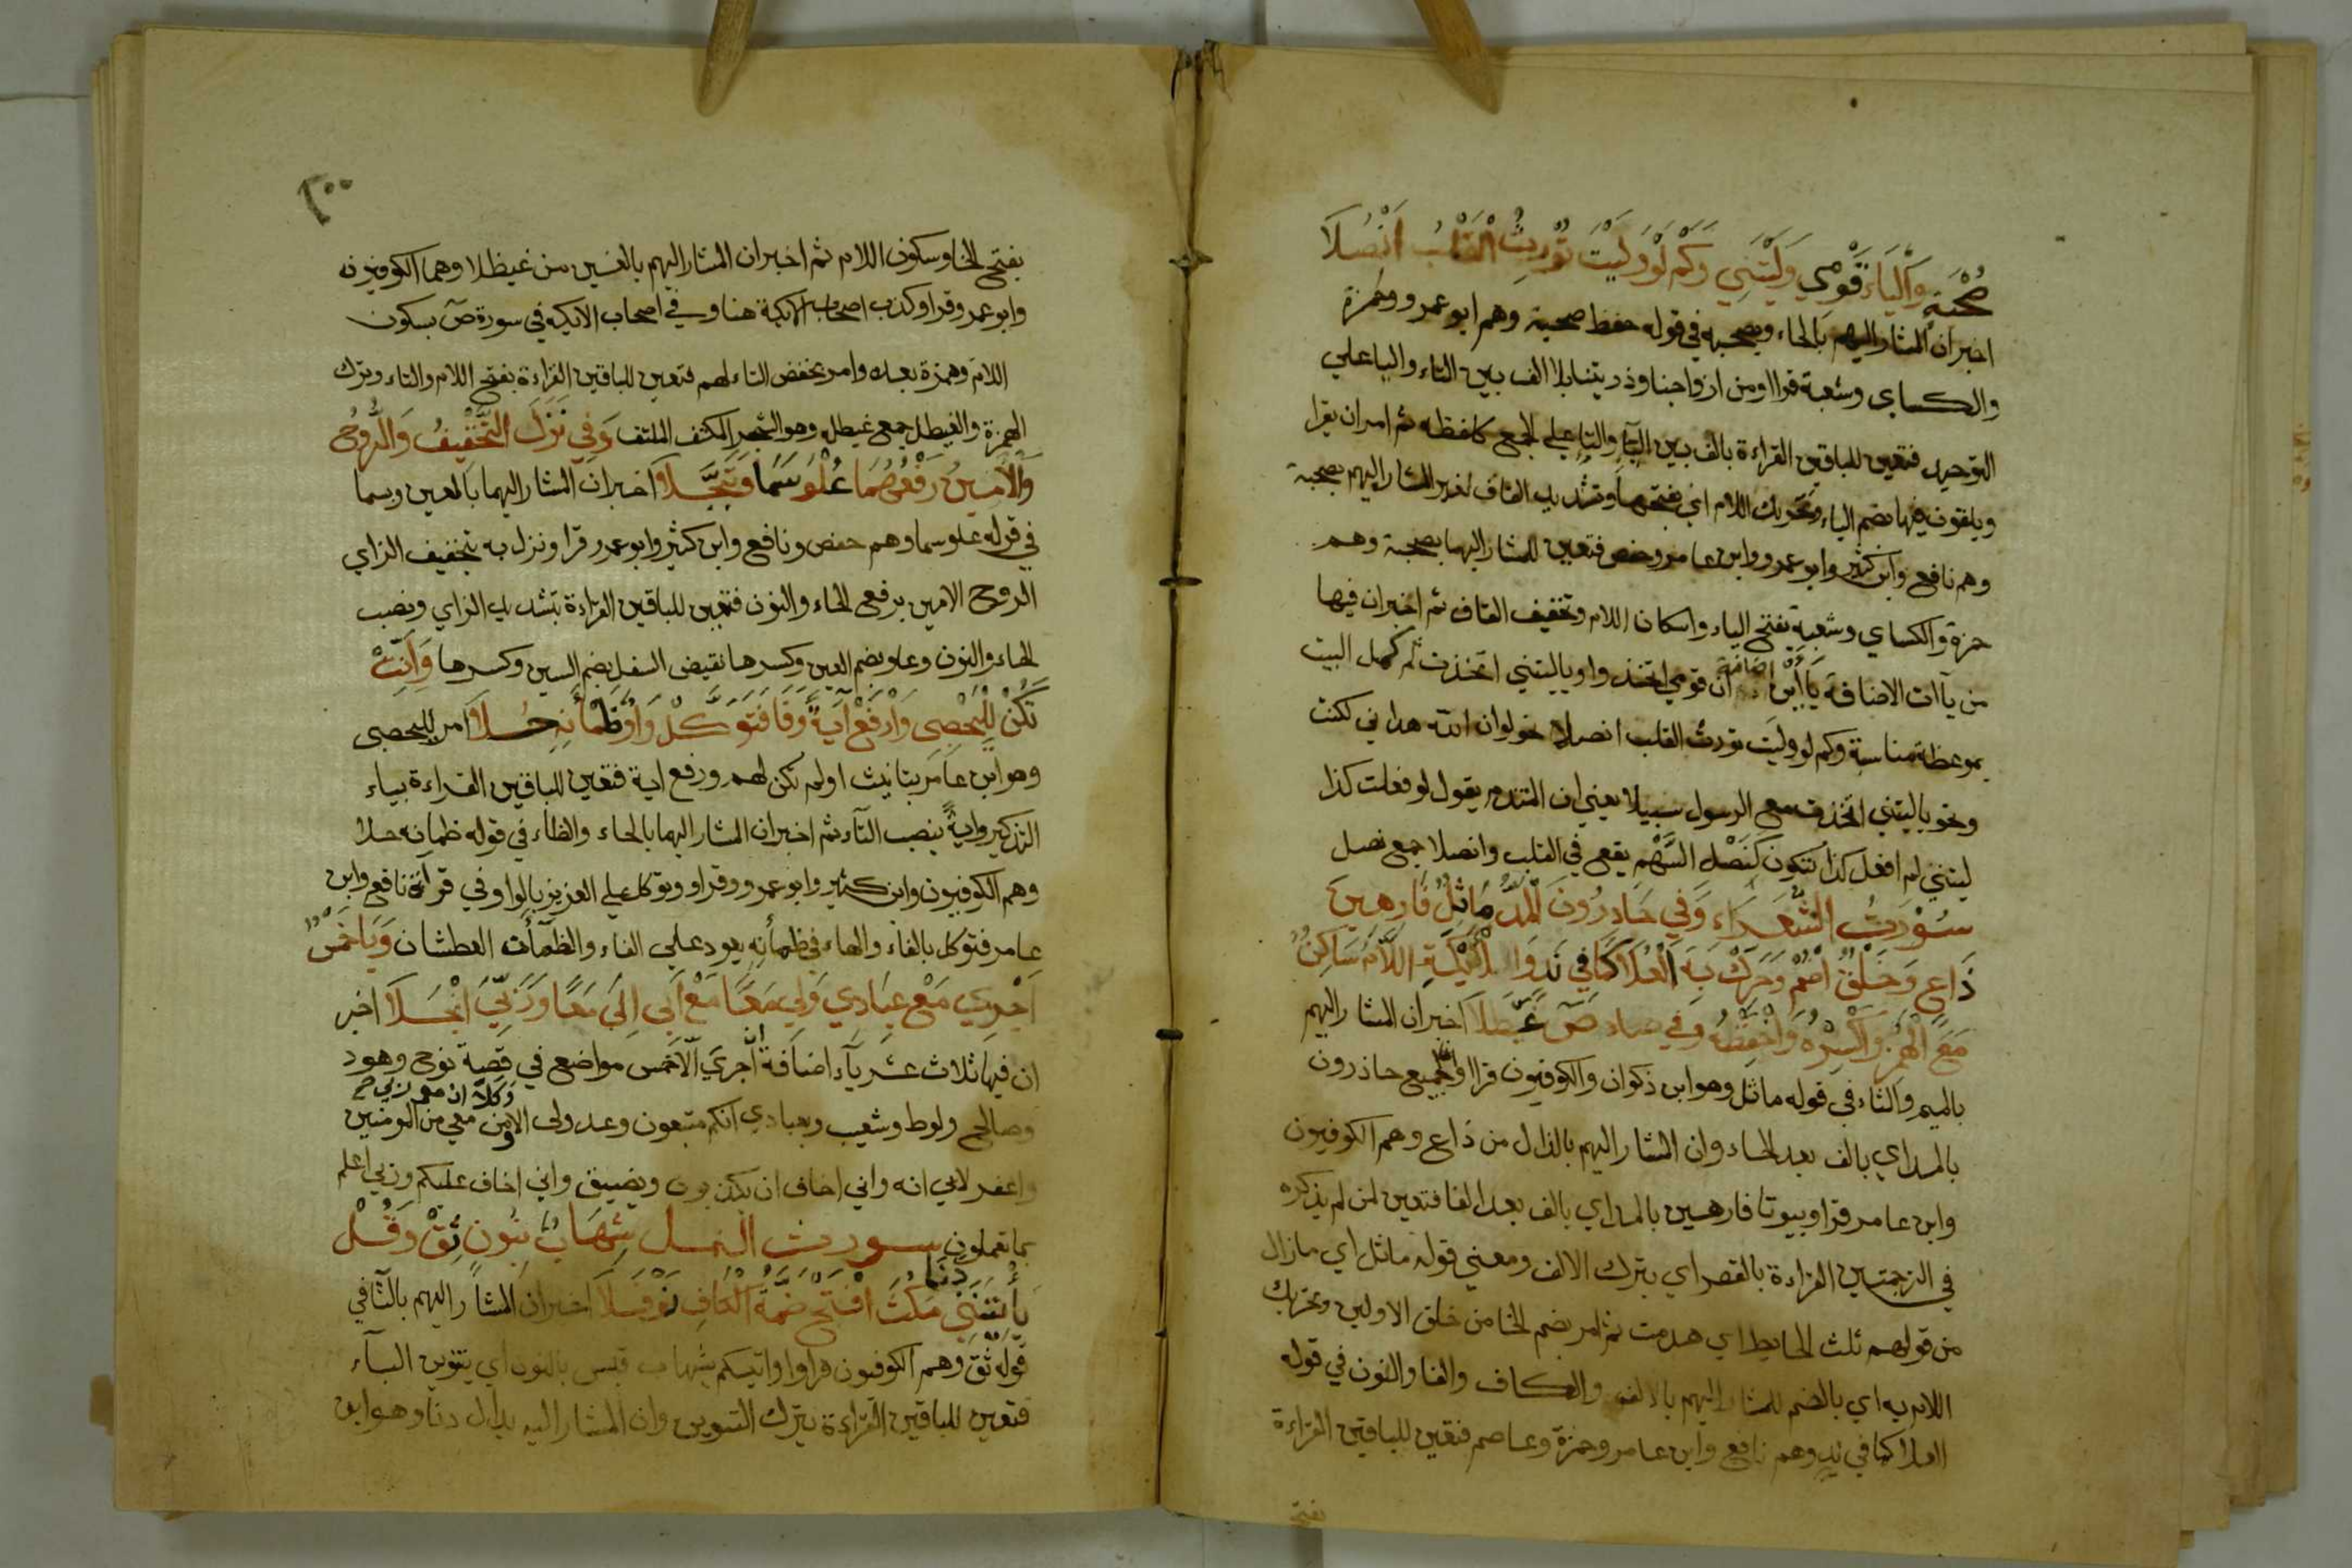 صُحْبَةٍ وَالْيَاءُ قَوْمِي وَلَيْتَنِي وَكَمْ لَوْ وَلَيْتَ تُوْرِثُ الْقَلْبَ اَنْصُلَا
اخبر ان المشار اليهم بالحاء وبصحبه في قوله حفظ صحبة وهم ابو عمرو وحمزة
والكساى وشعبة قراا ومن ازواجنا وذريتنا بلا الف بين التاء واليا على
التوحيد فتعين للباقين القراءة بالف بين اليآء والتآء على الجمع كلفظه ثم امر ان يقرا
ويلقون فيها بضم الياء وتحريك اللام اي بفتحها وتشديد القاف لغير المشار اليهم بصحبة
وهم نافع وابن كثير وابو عمرو وابن عامر وحفص فتعين للمشار اليهما بصحبة وهم
حمزة والكساي وشعبة بفتح الياء واسكان اللام وتخفيف القاف ثم اخبر ان فيها
من يآات الاضافة ياأين اضافة ان قومي اتخذوا ويا ليتني اتخذت ثم كمل البيت
بموعظة مناسبة وكم لو وليت تورث القلب انصلا نحو لو ان الله هداني لكنت
ونحو ياليتني اتخذت مع الرسول سبيلا يعني ان المتندم يقول لو فعلت كذا
ليتني لم افعل كذا فتكون كَنَصْل السَّهْم يقع في القلب وانصلا جمع نصل
سُوْرَتُ الشُّعَرَاء وَفي حَاذِرُونَ الْمَدُّ مَاثُلَّ فَارِهِينَ
ذَاعَ وَخَلْقُ اضْمُمْ وَحَرِّكْ بِهِ الْعُلَا كَمَا فِي نَدٍ وَالْاَيْكَةِ اللَّامُ سَاكِنٌ
مَعَ الْهَمْزِ وَاكْسِرْهُ وَاخْفِضْهُ وَفي صاد صَ غَيْطَلَا اخبر ان المشار اليهم
بالميم والثاء في قوله ماثل وهو ابن ذكوان والكوفيون قراا وانا لجميع حاذرون
بالمد اي بالف بعد الحاء وان المشار اليهم بالذال من ذاع وهم الكوفيون
وابن عامر قراو بيوتا فارهين بالمد اي بالف بعد الفا فتعين لمن لم يذكره
في الترجمتين القراءة بالقصر اي بترك الالف ومعني قوله ماثل اي مازال
من قولهم ثلث الحايط اي هدمت ثم امر بضم الخا من خلق الاولين وتحريك
اللام به اي بالضم للمشار اليهم بالالف والكاف والفا والنون في قوله
العلا كما في ند وهم نافع وابن عامر وحمزة وعاصم فتعين للباقين القراءة
بفتح
بفتح الخا وسكون اللام ثم اخبر ان المشار اليهم بالغين من غيطلا وهما الكوفيون
وابو عمرو قراو كذب اصحاب الايكة هنا وفي اصحاب الايكه في سورة صَ بسكون
اللام وهمزة بعده وامر بخفض التاء لهم فتعين للباقين القراءة بفتح اللام والتاء وترك
الهمزة والغيطل جمع غيطله وهو الشجر المكثف الملتف وَفِي نَزَلَ التَّخْفِيفُ وَالرُّوحُ
وَالْاَمِينُ رَفْعُهُمَا عُلْوُ سَمَا وَتَبَجَّلَا اخبر ان المشار اليهما بالعين وسما
في قوله علو سما وهم حفص ونافع وابن كثير وابو عمرو قرا ونزل به بتخفيف الزاي
الروح الامين برفع الحاء والنون فتعين للباقين القراءة بتشديد الزاي ونصب
الحاء والنون وعلو بضم العين وكسرها نقيض السفل بضم السين وكسرها وَاَنِّثْ
تَكُنْ لِلْيَحْصِبِي وَارْفَعْ آيَةً وَفَا فَتَوَكَّلْ وَاوُ ظَمْأَنِهِ حَلَا امر لليحصبى
وهو ابن عامر بتانيث اولم تكن لهم ورفع اية فتعين للباقين القراءة بياء
التذكير وايةً بنصب التآء ثم اخبر ان المشار اليهما بالحاء والظاء في قوله ظمانه حلا
وهم الكوفيون وابن كثير وابو عمرو وقراو وتوكل على العزيز بالواو وفي قراة نافع وابن
عامر فتوكل بالفاء والهاء في ظمأنه يعود على الفاء والظمأت العطشان وَيَا خَمْسٌ
اَجْرِيَ مَعْ عِبَادِي وَلِي مَعَا مَعْ اَبِي اِنِّيَ مَعًا وَرَبِّيَ انْجَلَا اخبر
ان فيها ثلاث عشر يآء اضافة ان اجري الا خمس مواضع في قصة نوح وهود
وصالح ولوط وشعيب وبعبادي انكم متبعون وعدولى الا ومن معي من المومنين
وكلا ان معى ربي ح
واغفر لابي انه واني اخاف ان يكذبون ويضيق واني اخاف عليكم وربي اعلم
بما تعملون سورت النمل شِهَابٍ بِنُونٍ ثِقْ وَقُلْ
يَأْتِيَنَّنِي دَنَا مَكُثَ افْتَحْ ضَمَّةَ الْكَافِ نَوْفَلَا اخبر ان المشار اليهم بالثا في
قوله ثق وهم الكوفيون قراوا واتيكم بشهاب قبس بالنون اي يتنوين البآء
فتعين للباقين القراءة بترك التنوين وان المشار اليه بدال دنا وهو ابن